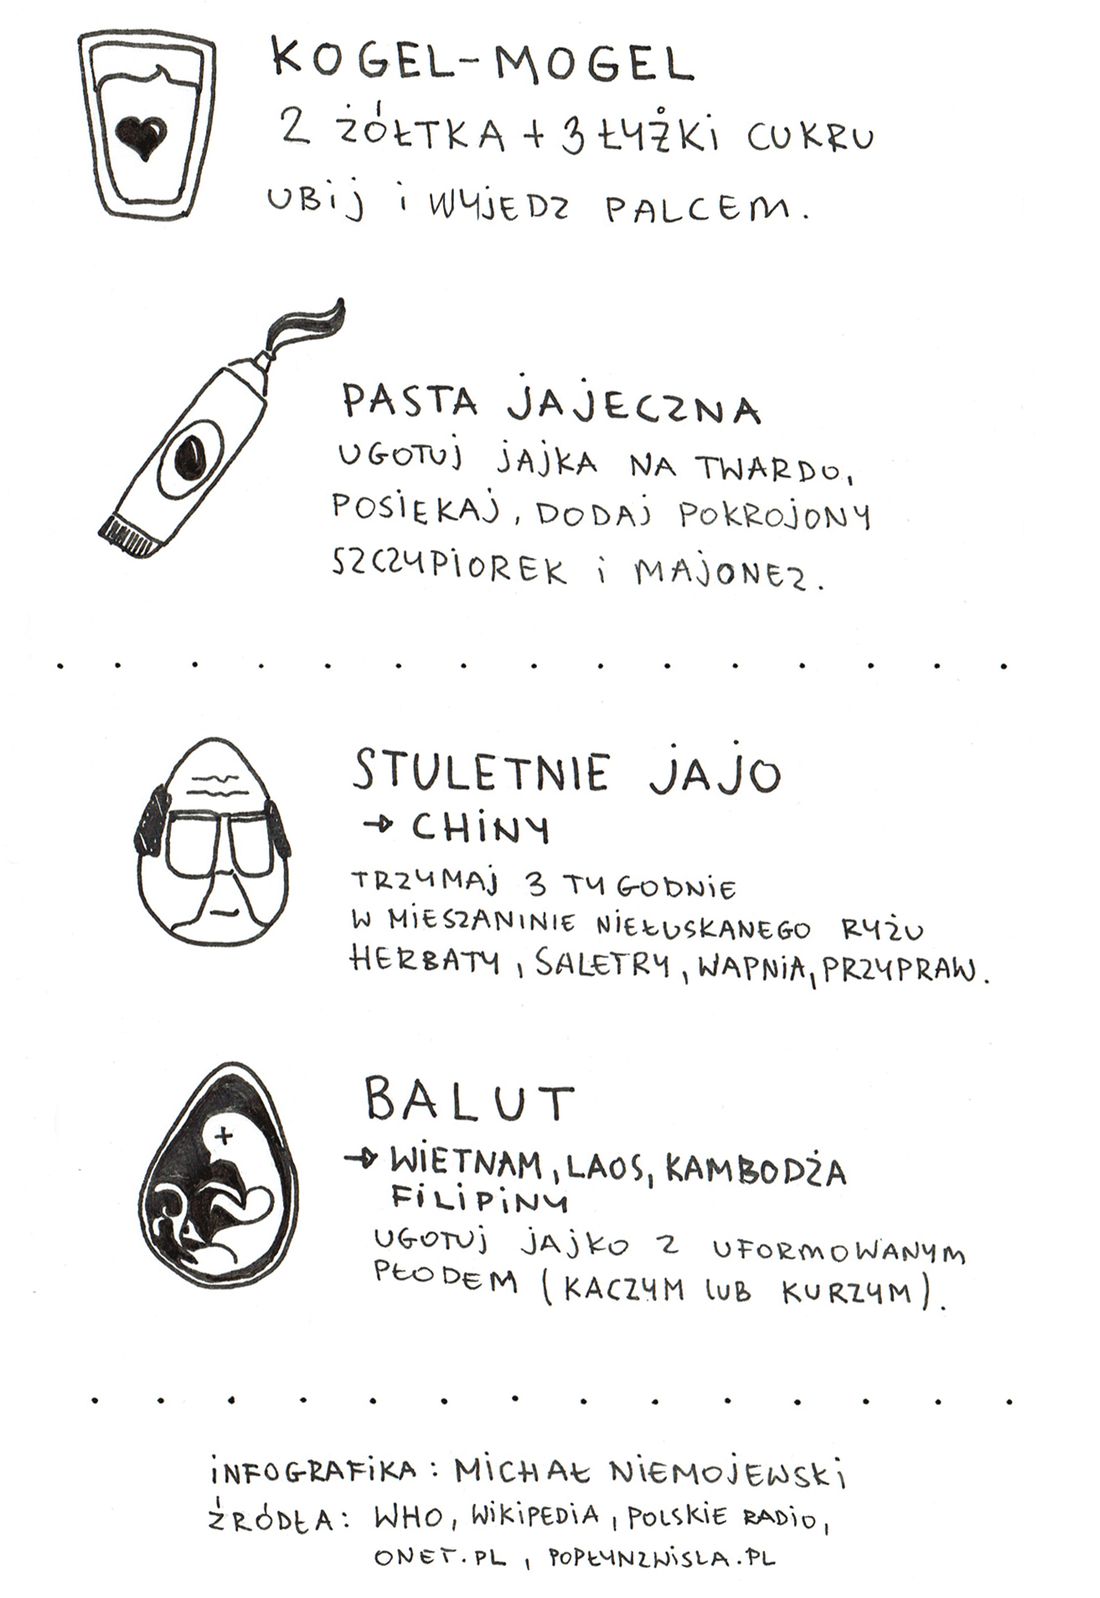 KOGEL-MOGEL
2 ŻÓŁTKA + 3 ŁYŻKI CUKRU
UBIJ I WYJEDZ PALCEM.
PASTA JAJECZNA
UGOTUJ JAJKA NA TWARDO,
POSIEKAJ, DODAJ POKROJONY
SZCZYPIOREK I MAJONEZ.
STULETNIE JAJO
→ CHINY
TRZYMAJ 3 TYGODNIE
W MIESZANINIE NIEŁUSKANEGO RYŻU
HERBATY, SALETRY, WAPNIA, PRZYPRAW.
BALUT
→ WIETNAM, LAOS, KAMBODŻA
FILIPINY
UGOTUJ JAJKO Z UFORMOWANYM
PŁODEM (KACZYM LUB KURZYM).
INFOGRAFIKA: MICHAŁ NIEMOJEWSKI
ŹRÓDŁA: WHO, WIKIPEDIA, POLSKIE RADIO,
ONET.PL, POPŁYNZWISLA.PL